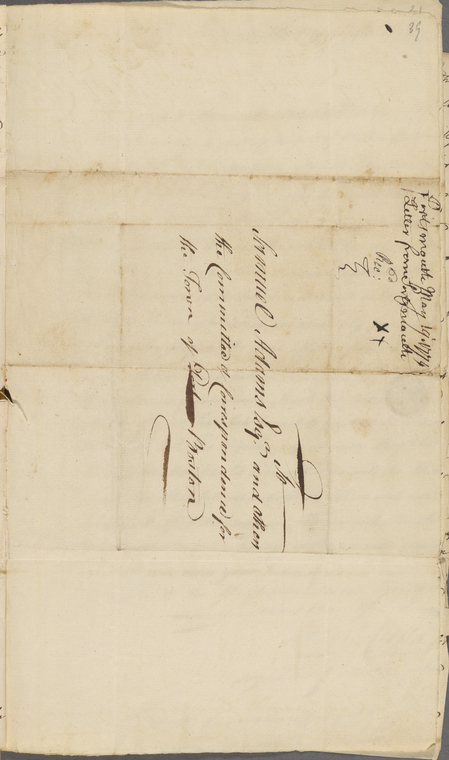 39
Portsmouth May 19. 1774
Letter from Portsmouth
Rec:d
XX
To
Samuel Adams Esq.r and others
the Committee of Correspondence for
the Town of Boston